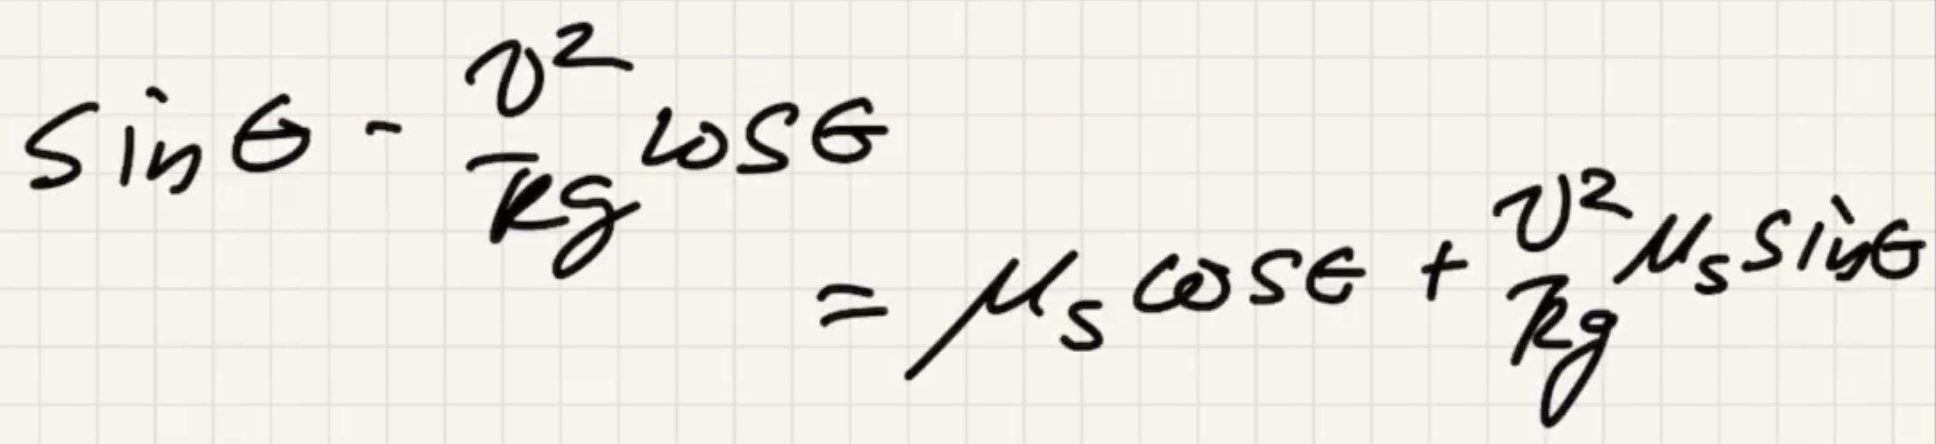 sinθ - v²/Rg cosθ
= μₛ cosθ + v²/Rg μₛ sinθ